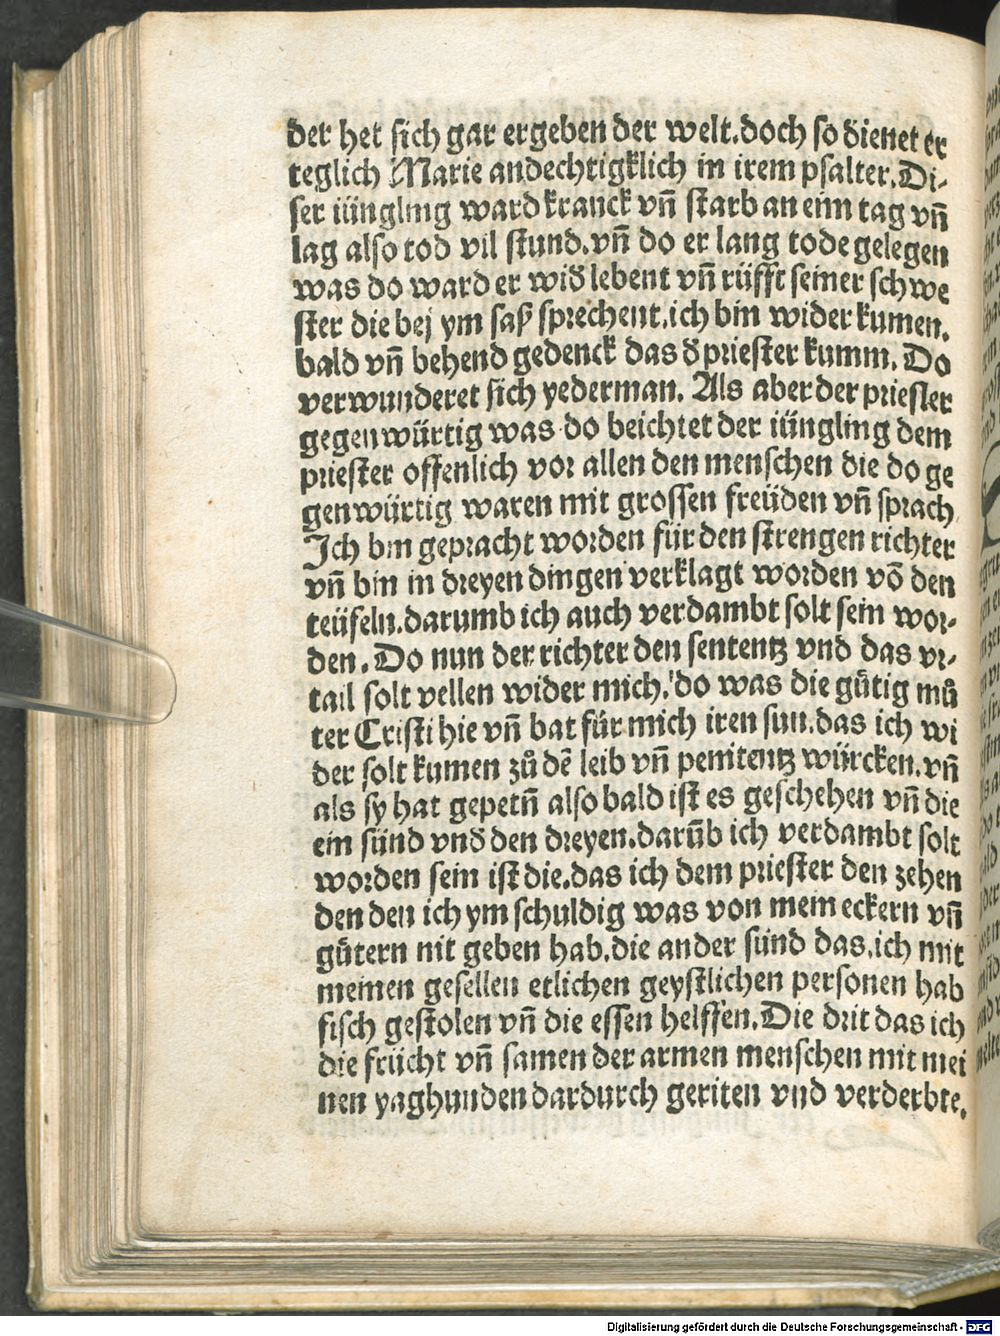 der het sich gar ergeben der welt.doch so dienet er
teglich Marie andechtigklich in irem psalter.Di-
ser iüngling ward kranck vñ starb an eim tag vñ
lag also tod vil stund.vñ do er lang tode gelegen
was do ward er wiđ lebent vñ rüfft seiner schwe
ster die bej ym saß sprechent.ich bin wider kumen.
bald vñ behend gedenck das đ priester kumm. Do
verwunderet sich yederman. Als aber der priester
gegenwürtig was do beichtet der iüngling dem
priester offenlich vor allen den menschen die do ge
genwürtig waren mit grossen freüden vñ sprach
Ich bin gepracht worden für den strengen richter
vñ bin in dreyen dingen verklagt worden võ den
teüfeln.darumb ich auch verdambt solt sein wor-
den. Do nun der richter den sententz vnd das vr-
tail solt vellen wider mich. do was die gůtig můͦ
ter Cristi hie vñ bat für mich iren sun.das ich wi
der solt kumen zů dẽ leib vñ penitentz würcken.vñ
als sy hat gepetñ also bald ist es geschehen vñ die
ein sünd vnđ den dreyen.darũb ich verdambt solt
worden sein ist die.das ich dem priester den zehen
den den ich ym schuldig was von mein eckern vñ
gůtern nit geben hab.die ander sünd das.ich mit
meinen gesellen etlichen geystlichen personen hab
fisch gestolen vñ die essen helffen.Die drit das ich
die frücht vñ samen der armen menschen mit mei
nen yaghunden dardurch geriten vnd verderbte.
Digitalisierung gefördert durch die Deutsche Forschungsgemeinschaft - DFG